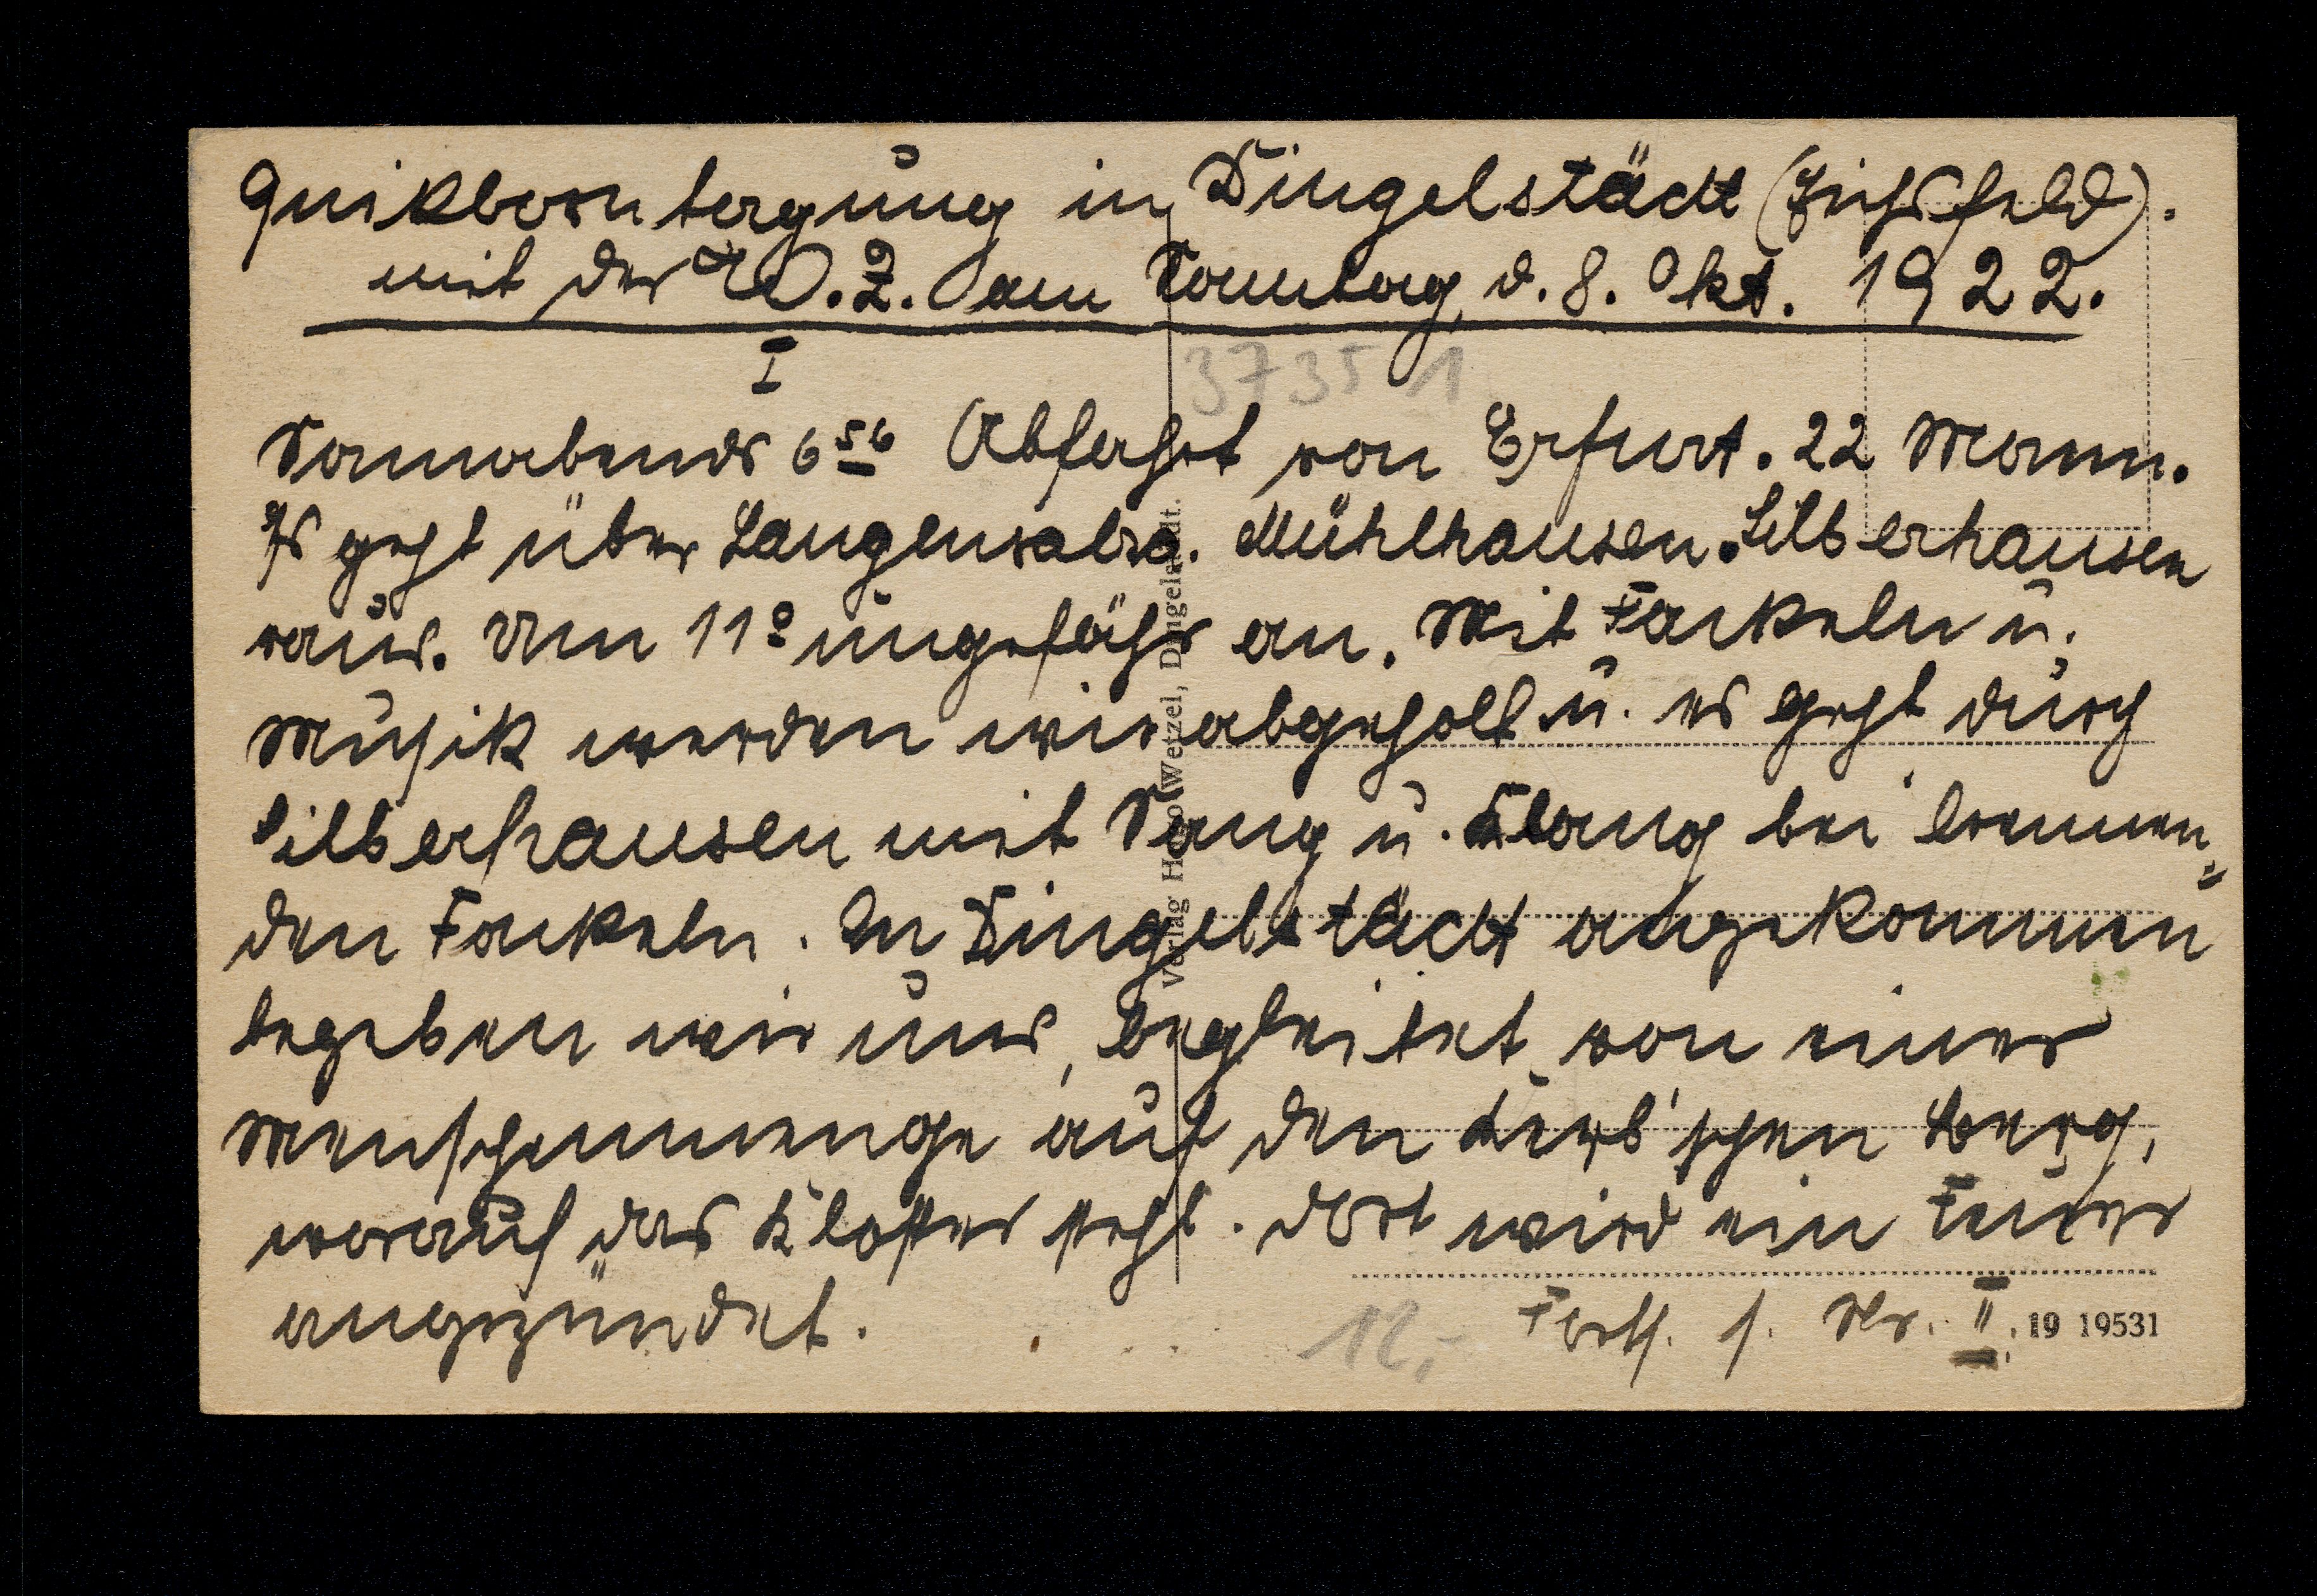 Quikborntagung in Dingelstädt (Eichsfeld).
mit der W.Z. am Sonntag, d. 8. Okt. 1922.
I
37351
Sonnabends 6 56 Abfahrt von Erfurt. 22 Mann.
Es geht über Langensalza. Mühlhausen. Silberhausen
raus. Um 11° ungefähr an. Mit Fackeln u.
Musik werden wir abgeholt u. es geht durch
Silberhausen mit Sang u. Klang bei brennen=
den Fackeln. In Dingelstädt angekommen
begeben wir uns, begleitet von einer
Menschenmenge auf den Kerb'schen Berg,
worauf das Kloster steht. Dort wird ein Feuer
angezündet.
12,- Forts. s. Nr. II.
19 19531
Verlag Wetzel, Dingelstädt.